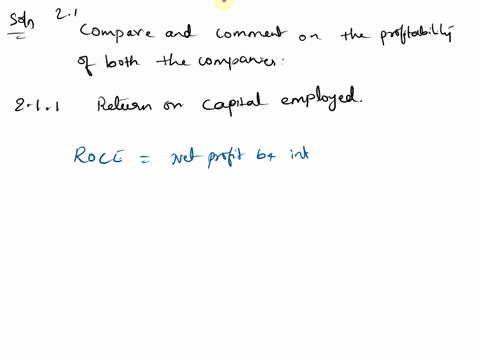 Soln 2.1
Compare and comment on the profitability
of both the companies:
2.1.1 Return on capital employed.
ROCE = Net profit b4 int